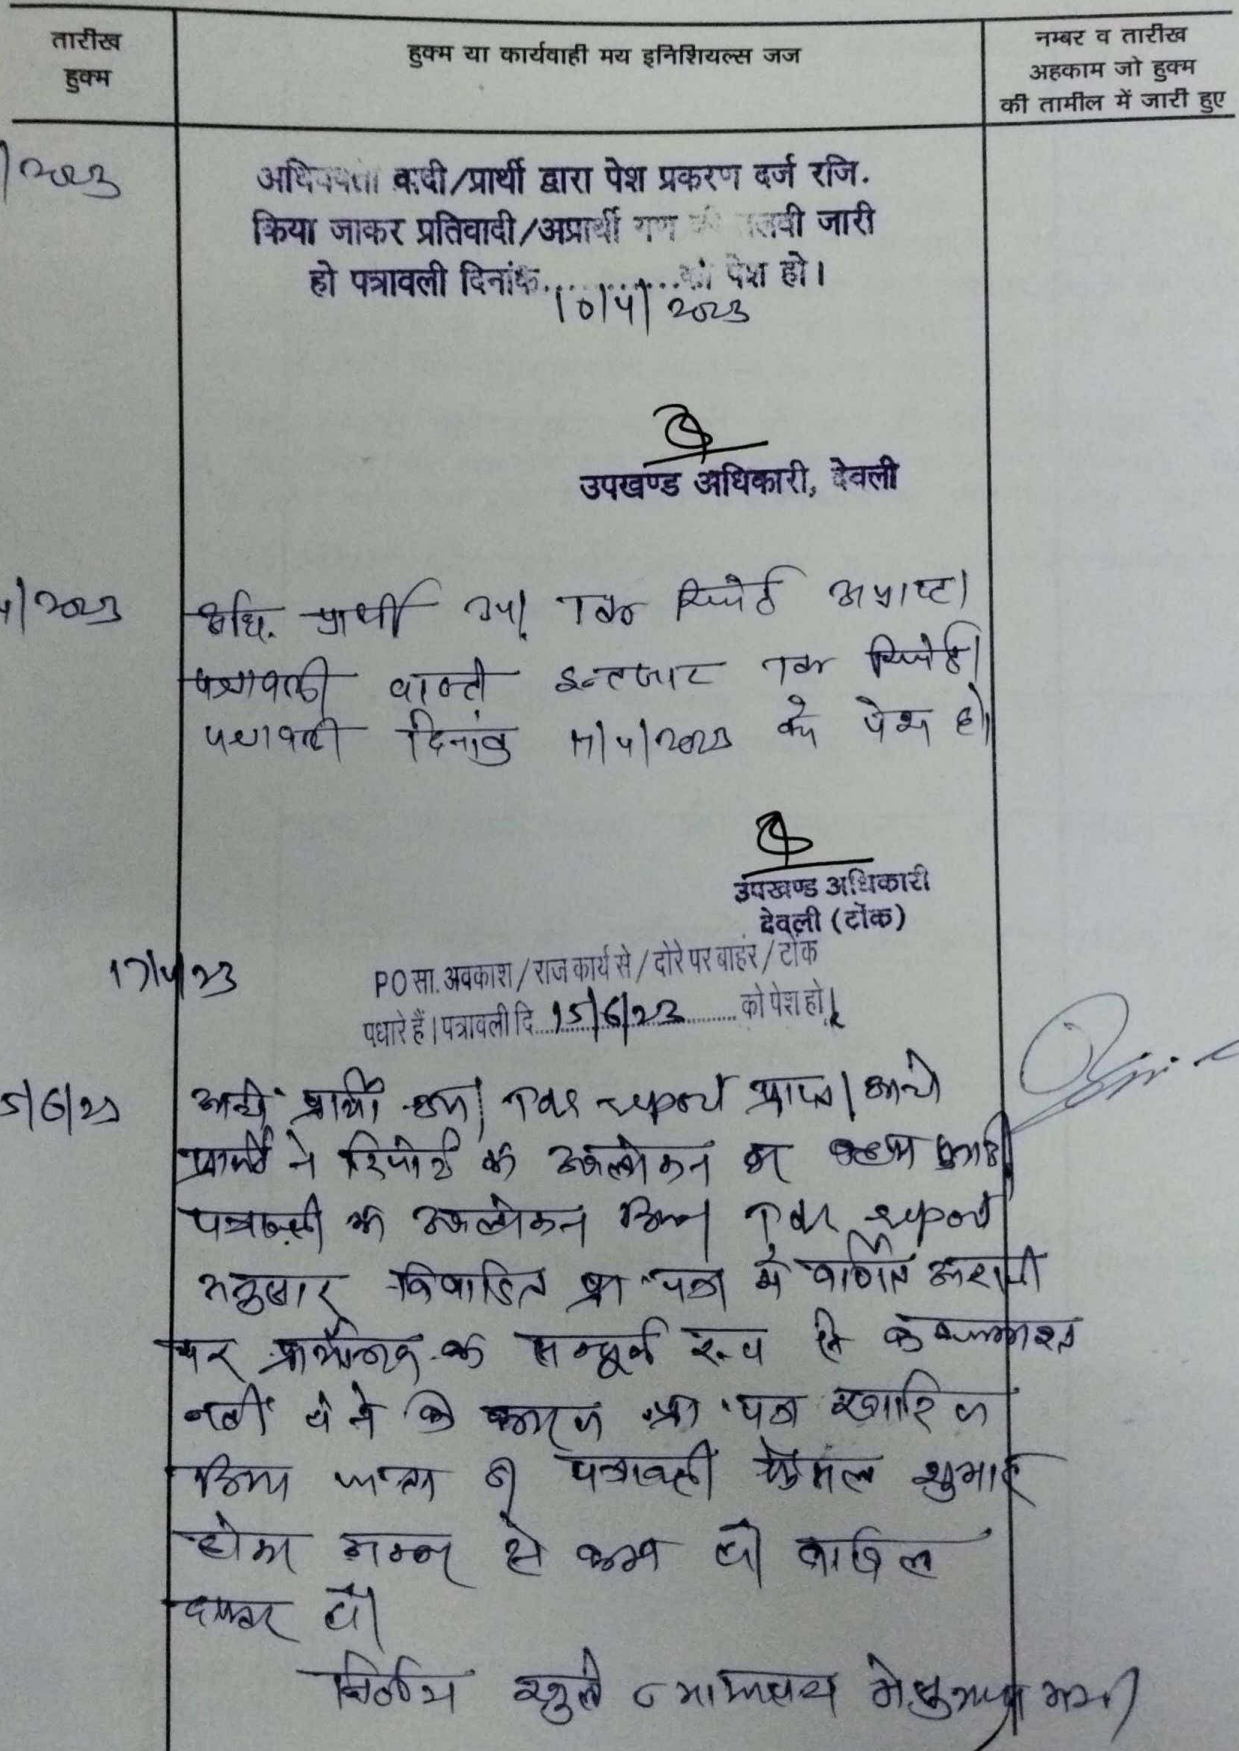 तारीख
हुक्म
हुक्म या कार्यवाही मय इनिशियल्स जज
नम्बर व तारीख
अहकाम जो हुक्म
की तामील में जारी हुए
/2023
अधिवक्ता वादी/प्रार्थी द्वारा पेश प्रकरण दर्ज रजि.
किया जाकर प्रतिवादी/अप्रार्थी गण की तलवी जारी
हो पत्रावली दिनांक............को पेश हो।
10/4/2023
उपखण्ड अधिकारी, देवली
4/2023
अधि. प्रार्थी उप। TDR रिपोर्ट अप्राप्त।
पत्रावली वास्ते इन्तजार TDR रिपोर्ट।
पत्रावली दिनांक 17/4/2023 को पेश हो।
उपखण्ड अधिकारी
देवली (टोंक)
17/4/23
PO सा. अवकाश/राज कार्य से/दोरे पर बाहर/टोंक
पधारे हैं। पत्रावली दि. 15/6/23 को पेश हो।
5/6/23
प्रार्थी उप। TDR report प्राप्त।
प्रार्थी ने रिपोर्ट का अवलोकन कर बहस
पत्रावली का अवलोकन किया TDR report
अनुसार विवादित प्रा पत्र में वर्णित आराजी
पर का सम्पूर्ण रूप से
नहीं होने के कारण प्रा पत्र खारिज
किया जाता है पत्रावली फैसल शुमार
होकर नम्बर से कम हो दाखिल
दफ्तर हो।
निर्णय खुले न्यायालय में सुनाया गया।